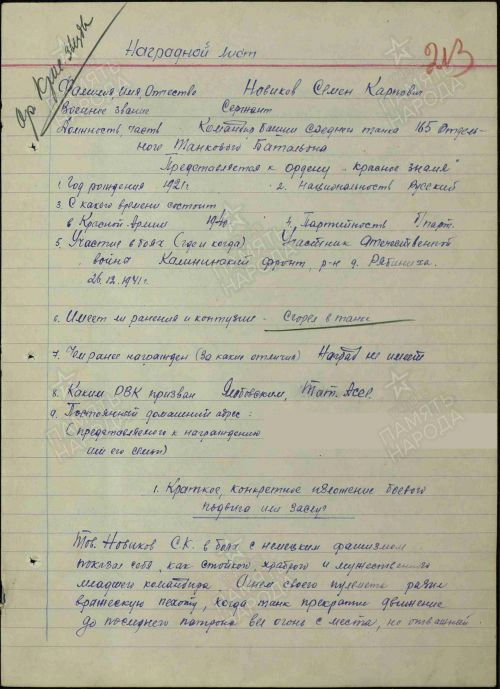 Ор. Красн. звезда
213
Наградной лист
Фамилия Имя Отчество Новиков Семен Карпович
Военное звание Сержант
Должность, часть Командир башни средней танка 165 Отдель-
ного Танкового Батальона
Представляется к ордену „Красное знамя"
1. Год рождения 1921г. 2. Национальность Русский
3. С какого времени состоит
в Красной Армии 1940 4. Партийность б/парт.
5. Участие в боях (где и когда) Участник Отечественной
война Калининский фронт, р-н д. Рябиниха.
26.12.1941г.
6. Имеет ли ранения и контузии - Сгорел в танке
7. Чем ранее награжден (За какие отличия) Наград не имеет
8. Каким РВК призван Тат. АССР.
9. Постоянный домашний адрес:
(представляемого к награждению
или его семьи)
1. Краткое, конкретное изложение боевого
подвига или заслуг
Тов. Новиков С.К. в боях с немецким фашизмом
показал себя, как стойкого, храброго и мужественного
младшего командира. Огнем своего пулемета разил
вражескую пехоту, когда танк прекратил движение
до последнего патрона вел огонь с места, но отважный
ПАМЯТЬ НАРОДА